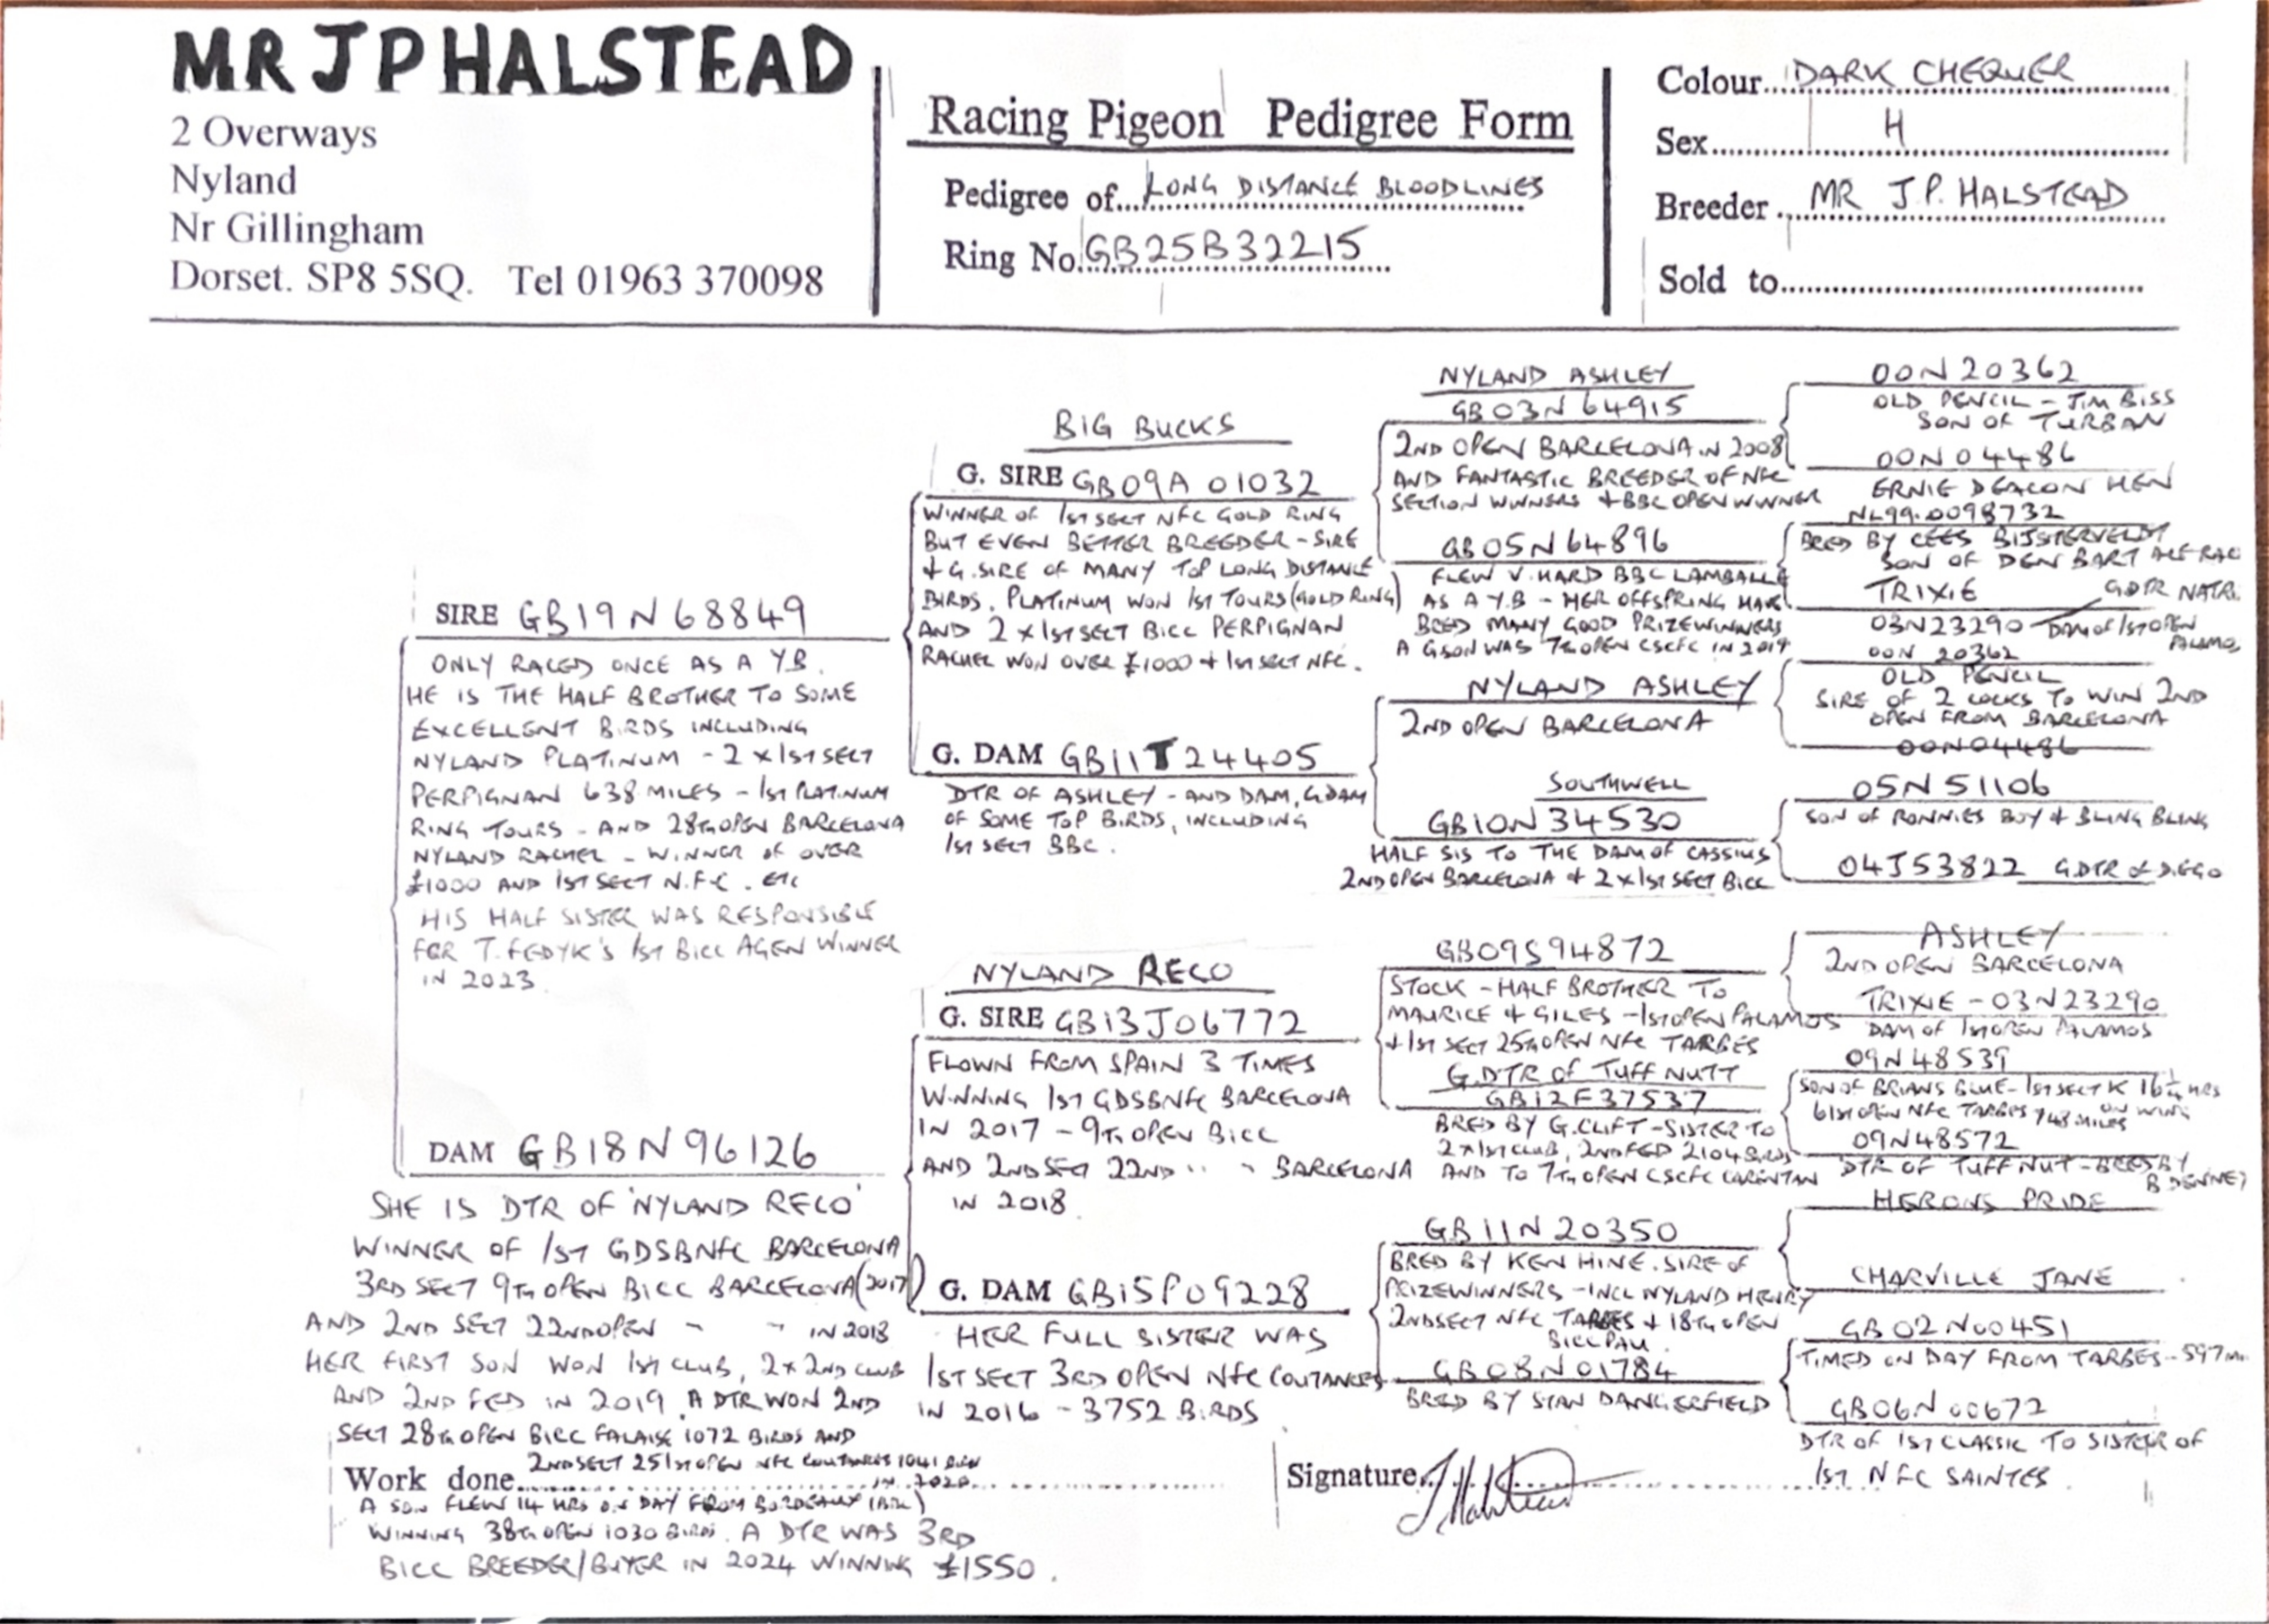 MR J P HALSTEAD
2 Overways
Nyland
Nr Gillingham
Dorset. SP8 5SQ. Tel 01963 370098
Racing Pigeon Pedigree Form
Pedigree of LONG DISTANCE BLOODLINES
Ring No. GB25B32215
Colour DARK CHEQUER
Sex H
Breeder MR J.P. HALSTEAD
Sold to
SIRE GB19N68849
ONLY RACED ONCE AS A Y.B.
HE IS THE HALF BROTHER TO SOME
EXCELLENT BIRDS INCLUDING
NYLAND PLATINUM - 2 x 1ST SECT
PERPIGNAN 638 MILES - 1ST PLATINUM
RING TOURS - AND 28TH OPEN BARCELONA
NYLAND RACHEL - WINNER OF OVER
£1000 AND 1ST SECT N.F.C. ETC
HIS HALF SISTER WAS RESPONSIBLE
FOR T. FEDYK'S 1ST BICC AGEN WINNER
IN 2023
DAM GB18N96126
SHE IS DTR OF 'NYLAND RECO'
WINNER OF 1ST GDSBNFC BARCELONA
3RD SECT 9TH OPEN BICC BARCELONA (2017)
AND 2ND SECT 22ND OPEN " " IN 2018
HER FIRST SON WON 1ST CLUB, 2x 2ND CLUB
AND 2ND FED IN 2019. A DTR WON 2ND
SECT 28TH OPEN BICC FALAISE 1072 BIRDS AND
2ND SECT 251ST OPEN NFC COUTANCES 1041 BIRDS
Work done IN 2020
A SON FLEW 14 HRS ON DAY FROM BORDEAUX (BBC)
WINNING 38TH OPEN 1030 BIRDS. A DTR WAS 3RD
BICC BREEDER/BUYER IN 2024 WINNING £1550.
BIG BUCKS
G. SIRE GB09A 01032
WINNER OF 1ST SECT NFC GOLD RING
BUT EVEN BETTER BREEDER - SIRE
+ G.SIRE OF MANY TOP LONG DISTANCE
BIRDS. PLATINUM WON 1ST TOURS (GOLD RING)
AND 2 x 1ST SECT BICC PERPIGNAN
RACHEL WON OVER £1000 + 1ST SECT NFC.
G. DAM GB11T24405
DTR OF ASHLEY - AND DAM, GDAM
OF SOME TOP BIRDS, INCLUDING
1ST SECT BBC.
NYLAND RECO
G. SIRE GB13J06772
FLOWN FROM SPAIN 3 TIMES
WINNING 1ST GDSBNFC BARCELONA
IN 2017 - 9TH OPEN BICC
AND 2ND SECT 22ND " " BARCELONA
IN 2018
G. DAM GB15P09228
HER FULL SISTER WAS
1ST SECT 3RD OPEN NFC COUTANCES
IN 2016 - 3752 BIRDS
NYLAND ASHLEY
GB03N 64915
2ND OPEN BARCELONA IN 2008
AND FANTASTIC BREEDER OF NFC
SECTION WINNERS + BBC OPEN WINNER
GB05N64896
FLEW V. HARD BBC LAMBALLE
AS A Y.B - HER OFFSPRING HAVE
BRED MANY GOOD PRIZEWINNERS
A GSON WAS 7TH OPEN CSCFC IN 2019
NYLAND ASHLEY
2ND OPEN BARCELONA
SOUTHWELL
GB10N34530
HALF SIS TO THE DAM OF CASSIUS
2ND OPEN BARCELONA + 2 x 1ST SECT BICC
GB09S94872
STOCK - HALF BROTHER TO
MAURICE + GILES - 1ST OPEN PALAMOS
+ 1ST SECT 25TH OPEN NFC TARBES
G.DTR OF TUFF NUTT
GB12F37537
BRED BY G.CLIFT - SISTER TO
2 x 1ST CLUB, 2ND FED 2104 BIRDS
AND TO 7TH OPEN CSCFC CARENTAN
GB11N20350
BRED BY KEN HINE. SIRE OF
PRIZEWINNERS - INCL NYLAND HENRY
2ND SECT NFC TARBES + 18TH OPEN
BICC PAU.
GB08N01784
BRED BY STAN DANGERFIELD
00N20362
OLD PENCIL - JIM BISS
SON OF TURBAN
00N04486
ERNIE DEACON HEN
NL99.0098732
BRED BY CEES BIJSTERVELDT
SON OF DEN BART
TRIXIE GDTR
03N23290 DAM OF 1ST OPEN
PALAMOS
00N 20362
OLD PENCIL
SIRE OF 2 COCKS TO WIN 2ND
OPEN FROM BARCELONA
00N04486
05N51106
SON OF RONNIES BOY + BLING BLING
04J53822 G.DTR OF DIEGO
ASHLEY
2ND OPEN BARCELONA
TRIXIE - 03N23290
DAM OF 1ST OPEN PALAMOS
09N48539
SON OF BRIANS BLUE - 1ST SECT K 16¼ HRS
ON WING
61ST OPEN NFC TARBES 748 MILES
09N48572
DTR OF TUFF NUT - BRED BY
B DENNEY
HERONS PRIDE
CHARVILLE JANE
GB02N00451
TIMED ON DAY FROM TARBES - 597
GB06N00672
DTR OF 1ST CLASSIC TO SISTER OF
1ST NFC SAINTES
Signature